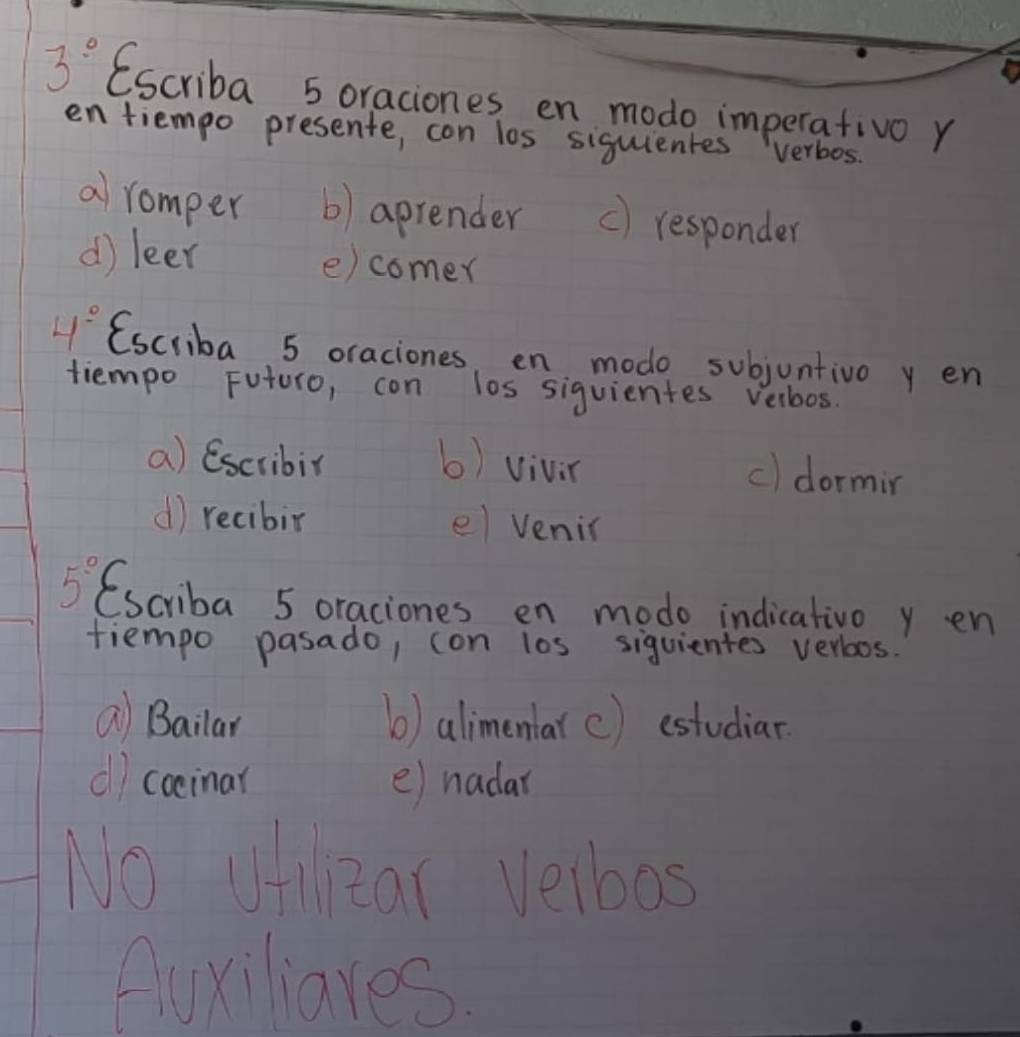 3º Escriba 5 oraciones en modo imperativo y
en tiempo presente, con los siguientes verbos.
a) romper b) aprender c) responder
d) leer e) comer
4º Escriba 5 oraciones en modo subjuntivo y en
tiempo Futuro, con los siguientes verbos.
a) Escribir b) vivir c) dormir
d) recibir e) venir
5º Escriba 5 oraciones en modo indicativo y en
tiempo pasado, con los siguientes verbos.
a) Bailar b) alimentar c) estudiar.
d) cocinar e) nadar
No utilizar verbos
Auxiliares.